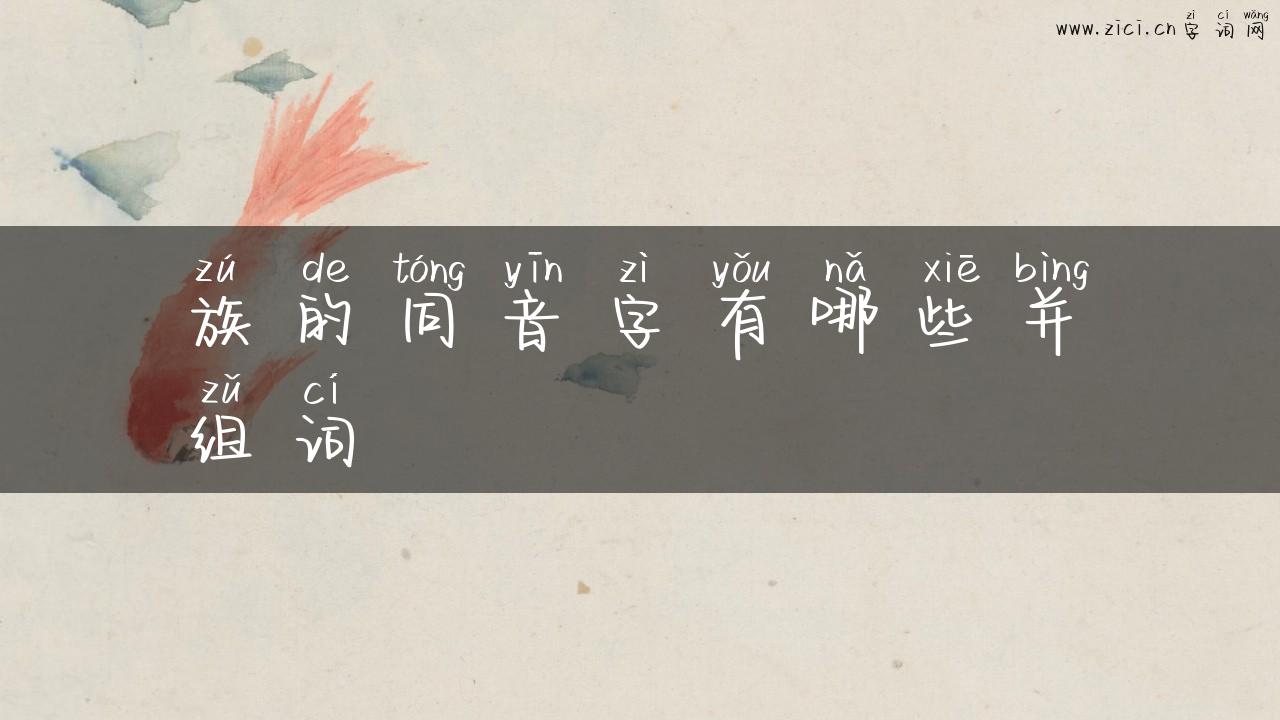 zì cí wǎng
www.zici.cn字词网
zú de tóng yīn zì yǒu nǎ xiē bìng
族的同音字有哪些并
zǔ cí
组词